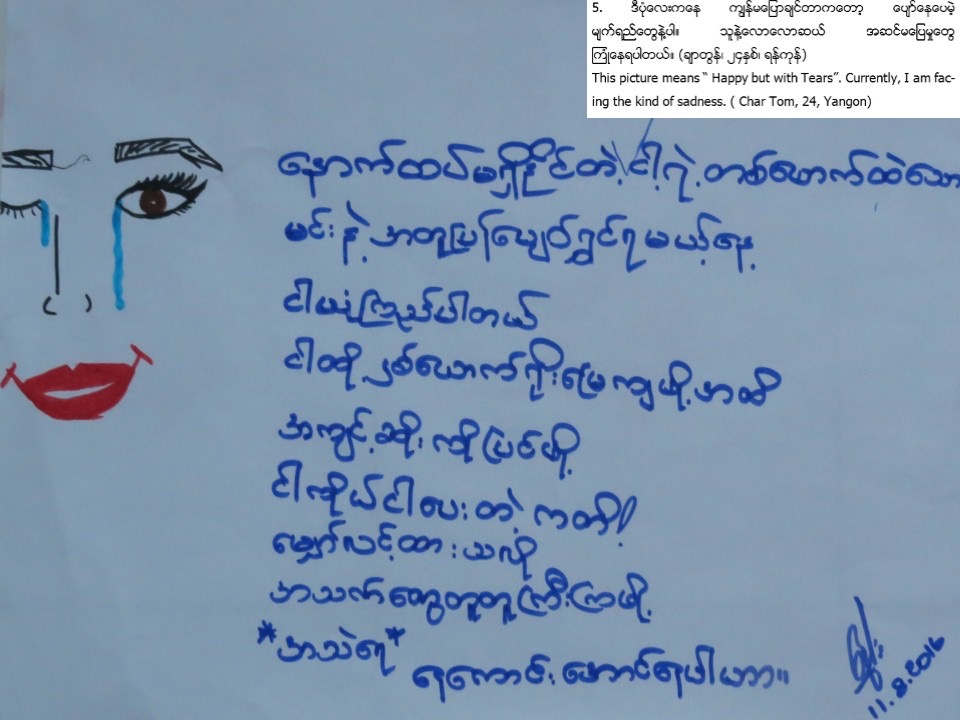 5. ဒီပုံလေးကနေ ကျွန်မပြောချင်တာကတော့ ပျော်နေပေမဲ့
မျက်ရည်တွေနဲ့ပါ။ သူနဲ့လောလောဆယ် အဆင်မပြေမှုတွေ
ကြုံနေရပါတယ်။ (ချာတွန်၊ ၂၄နှစ်၊ ရန်ကုန်)
This picture means “ Happy but with Tears”. Currently, I am fac-
ing the kind of sadness. ( Char Tom, 24, Yangon)
နောက်ထပ်မရှိနိုင်တဲ့ ငါ့ရဲ့ တစ်ယောက်ထဲသော
မင်းနဲ့ အတူပြန်ပျော်ရွှင်ရမယ့်နေ့
ငါယုံကြည်ပါတယ်
ငါတို့ ၂စ်ယောက်ရိုးမြေကျဖို့ အထိ
အကျင့်ဆိုး ကိုပြင်ဖို့
ငါကိုယ်ငါပေးတဲ့ ကတိ!
မျှော်လင့်ထားသလို
အသက်တွေတူတူကြီးကြဖို့
*အသဲရေ*
နေကောင်းအောင်နေပါဟာ။
11.8.2016